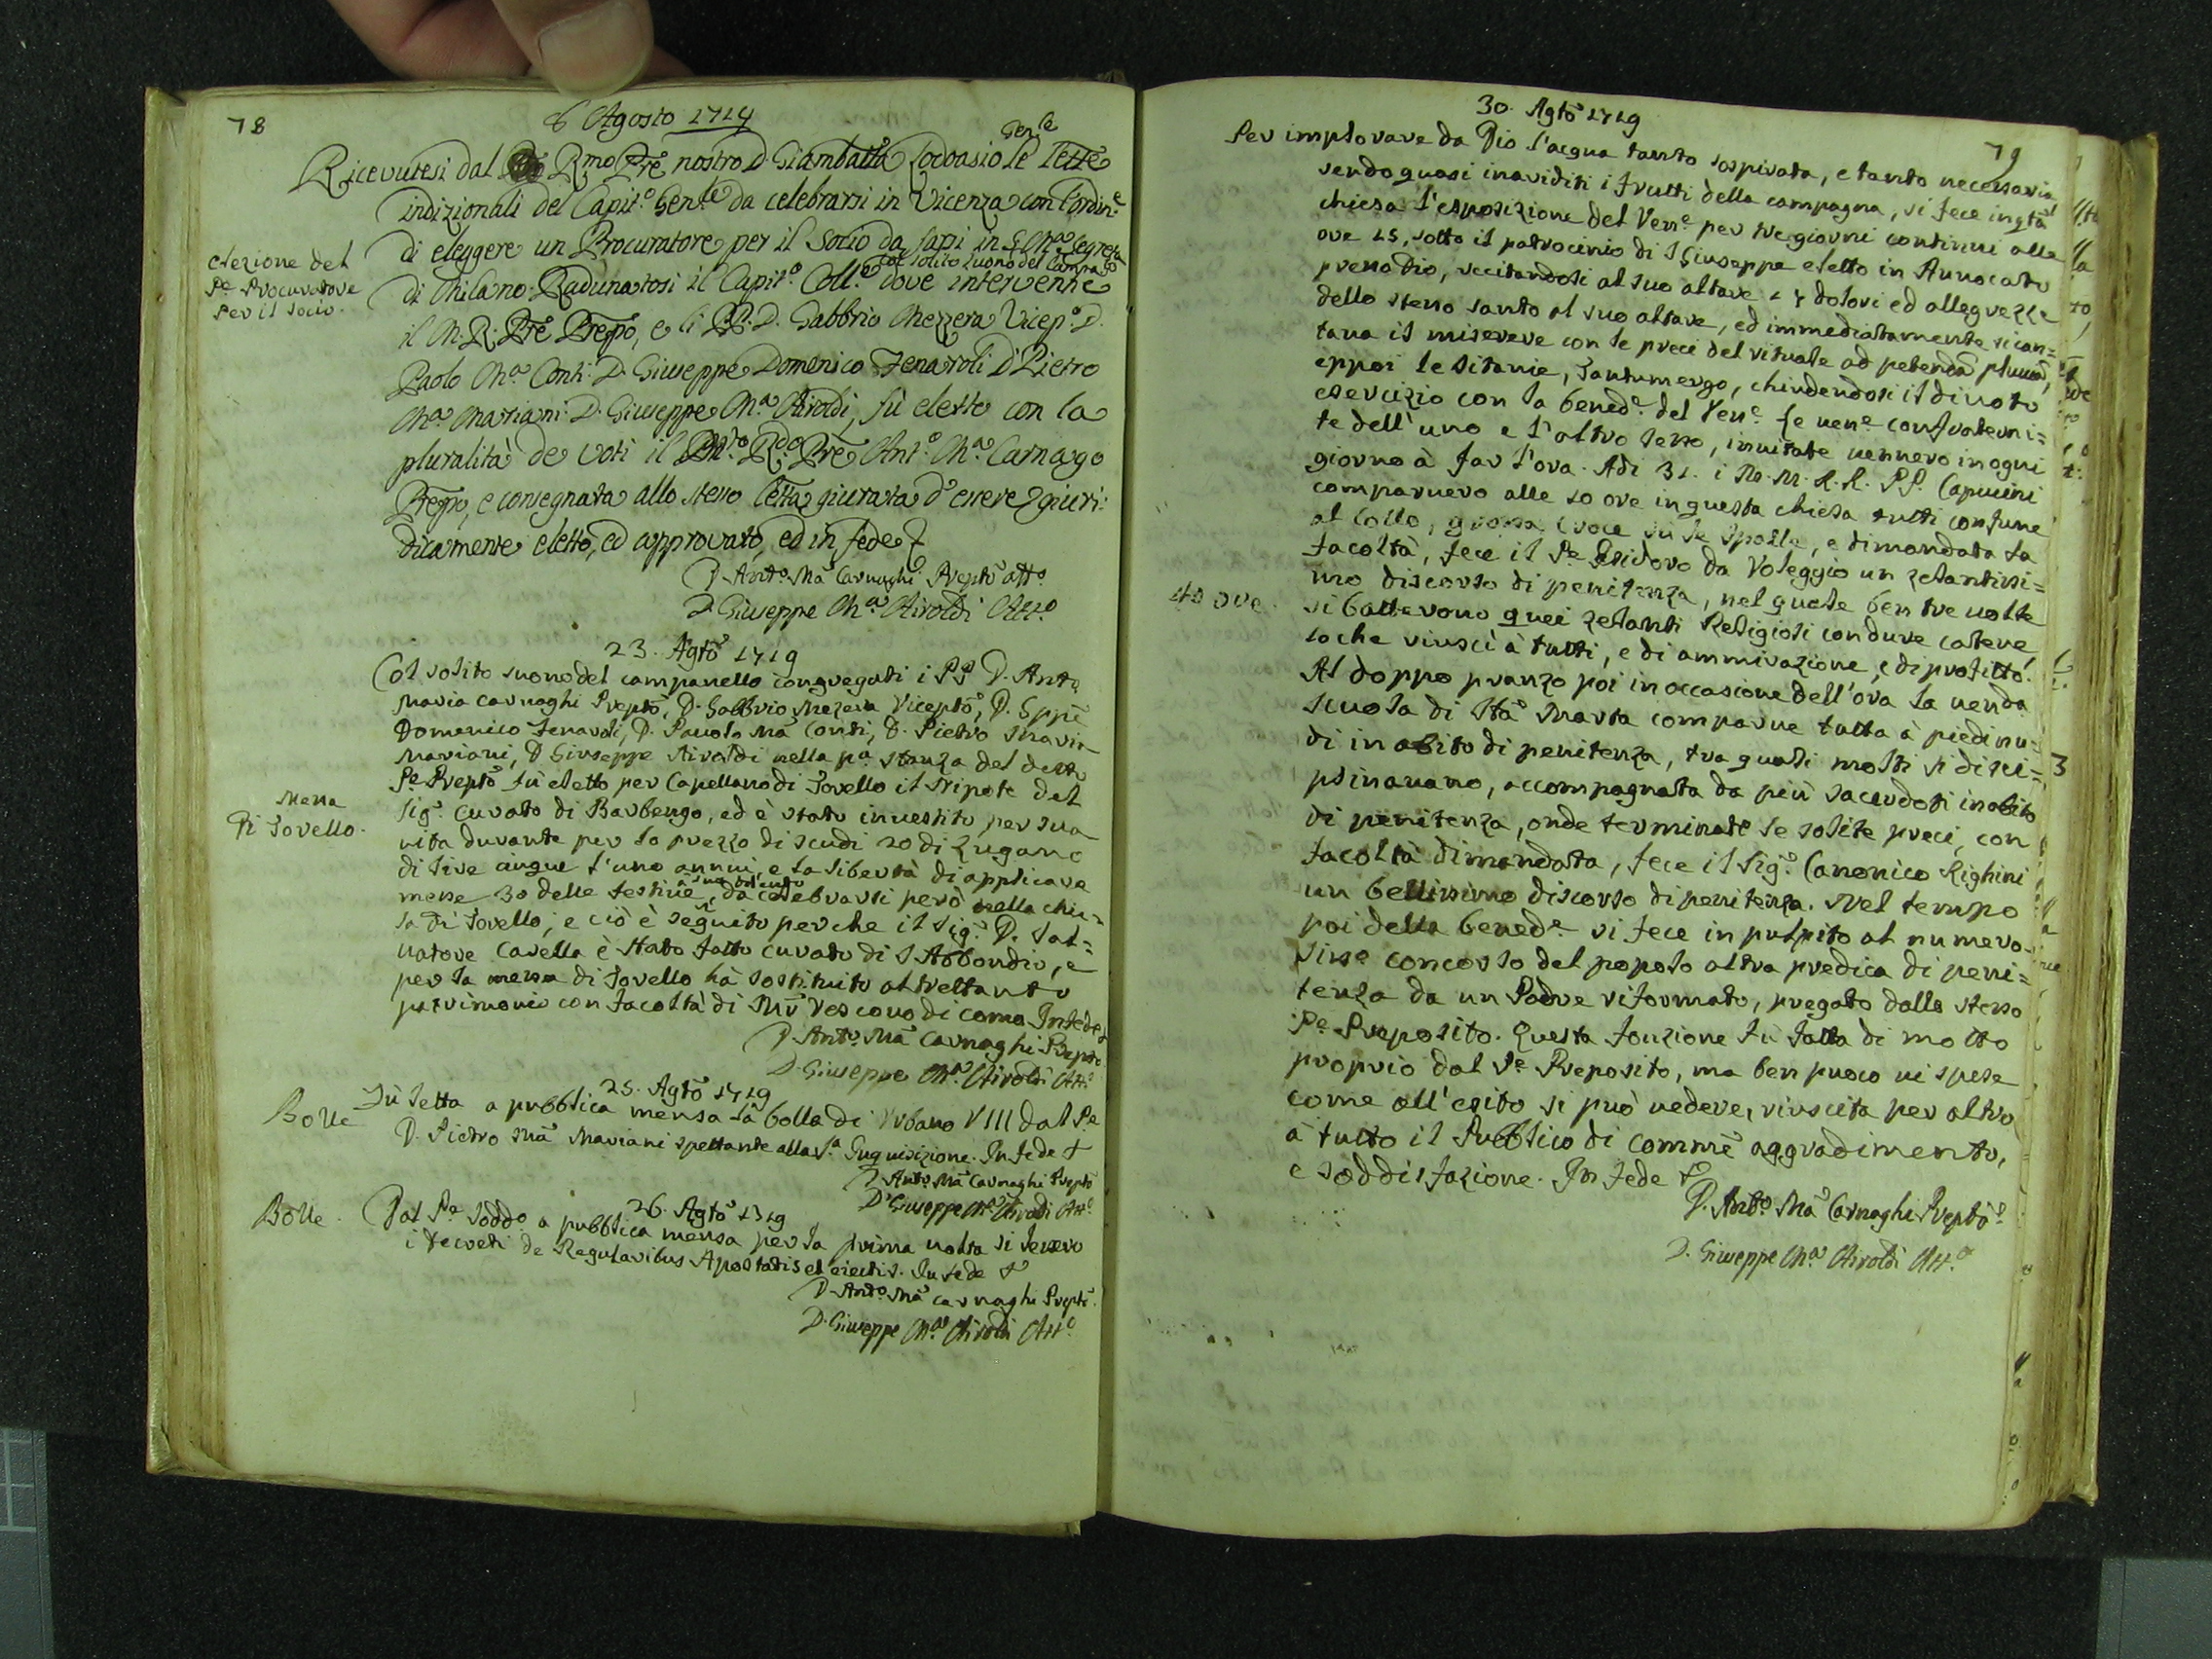 78
6 Agosto 1719
Genle
Ricevutesi dal Rmo Pre nostro D. Giambatta Lodoasio le lette
indizionali del Capit.o Gen.le da celebrarsi in Vicenza con l'ordin.e
di eleggere un Procuratore per il Socio da farsi in S. Ma. Segreta
col solito suono del Campa.o
di Milano. Radunatosi il Capit.o Coll.e dove intervenne
il M. R. Pre Preppo, e li PP. D. Gabbrio Mezzera Vicep.o D.
Paolo Ma. Conti. D. Giuseppe Domenico Fenaroli D. Pietro
Ma. Mariani. D. Giuseppe Ma. Airoldi, fù eletto con la
pluralità de voti il M.o R.do Pre Ant.o Ma. Carnago
Preppo, e consegnata allo stesso letta giurata d'essere giuri:
dicamente eletto, ed approvato, ed in fede
D. Anto. Ma Carnaghi Prepto atto.
D. Giuseppe Ma. Airoldi Att.o
elezione del
Pe Procuratore
per il socio.
23. Agto 1719
Col solito suono del campanello congregati i PP. D. Anto
Maria Carnaghi Prepto, D. Gabbrio Mezera Vicepto, D. Gppe
Domenico Fenaroli, D. Pauolo Ma Conti, D. Pietro Maria
Mariani, D Giuseppe Airoldi nella pa stanza del detto
Pe Prepto fù eletto per Capellano di Sovello il Nipote del
Sig.e Curato di Barbengo, ed è stato inuestito per sua
uita durante per lo prezzo di scudi 20 di Lugano
di lire cinque l'uno annui, e la libertà di applicare
messe 30 delle festiue a suo talento, da celebrarsi però nella chie=
sa di Sovello, e ciò è seguito perche il Sig.e D. Sal=
uatore Casella è stato fatto curato di S Abbondio, e
per la messa di Sovello hà sostituito altrettanto
patrimonio con facoltà di Mr Vescouo di Como. In fede
D. Anto Ma Carnaghi Prepto
D. Giuseppe Ma. Airoldi Att.o
Messa
Di Sovello.
25. Agto 1719
Bolle
Fù letta a pubblica mensa la bolla di Vrbano VIII dal Pe
D. Pietro Ma Mariani spettante alla Sa Inquisizione. In fede
D. Anto Ma Carnaghi Prepto
D. Giuseppe Ma. Airoldi Att.o
26. Agto 1719
Bolle.
Dal Pe soddo a pubblica mensa per la prima uolta si lessero
i decreti de Regularibus Apostatis et eiectis. In fede
D. Anto Ma Carnaghi Prepto.
D. Giuseppe Ma. Airoldi Att.o
30. Agto 1719
79
Per implorare da Dio l'acqua tanto sospirata, e tanto necessaria
sendo quasi inariditi i frutti della campagna, si fece in qta
chiesa l'esposizione del Ven.e per tre giorni continui alle
ore 15, sotto il patrocinio di S Giuseppe eletto in Auuocato
presso Dio, recitandosi al suo altare i 7 dolori ed allegrezze
dello stesso santo al suo altare, ed immediatamente si can=
taua il miserere con le preci del rituale ad petenda pluuia,
eppoi le litanie, Tantumergo, chiudendosi il diuoto
esercizio con la bened.e del Ven.e Le uen.e confraterni=
te dell'uno e l'altro sesso, inuitate uennero in ogni
giorno à far l'ora. Adi 31. i M. M. R. R. PP. Capucini
comparuero alle 10 ore in questa chiesa tutti con fune
al collo, grossa Croce sù le spalle, e dimandata la
facoltà, fece il Pe Isidoro da Voleggio un zelantissi=
mo discorso di penitenza, nel quale ben tre uolte
40 ore.
si batterono quei zelanti Religiosi con dure catene,
loche riuscì à tutti, e di ammirazione, e di profitto.
Al doppo pranzo poi in occasione dell'ora la uenda
scuola di Sta Marta comparue tutta à piedi nu=
di in abito di penitenza, tra quali molti si disci=
plinauano, accompagnata da più sacerdoti in abito
di penitenza, onde terminate le solite preci, con
facoltà dimandata, fece il Sig.e Canonico Righini
un bellissimo discorso di penitenza. Nel tempo
poi della bened.e si fece in pulpito al numero=
siss.o concorso del popolo altra predica di peni=
tenza da un Padre riformato, pregato dallo stesso
Pe Preposito. Questa fonzione fù fatta di motto
proprio dal Pe Preposito, ma ben puoco ui spese
come all'esito si può uedere, riuscita per altro
à tutto il Pubblico di comme aggradimento,
e soddisfazione. In fede
D. Anto Ma Carnaghi Prepto
D. Giuseppe Ma. Airoldi Att.o